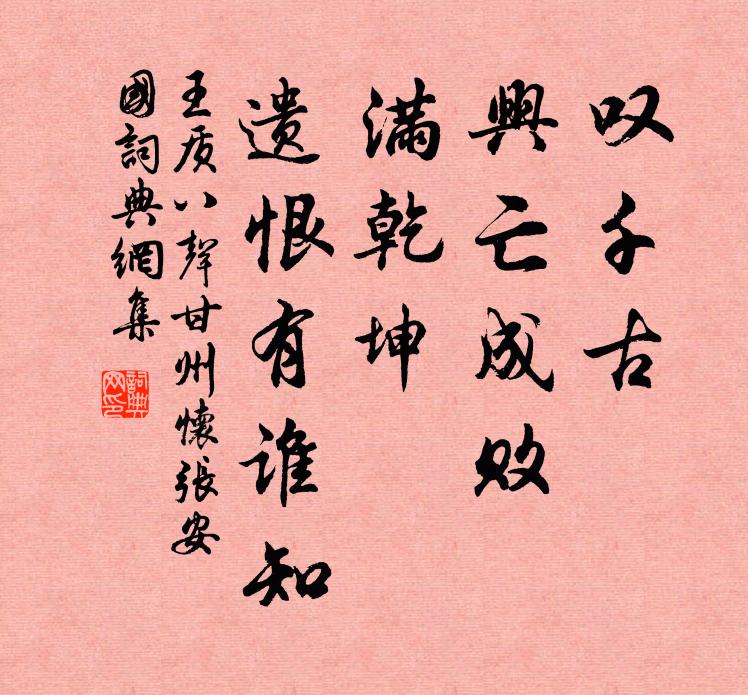 叹千古
興亡成败
满乾坤
遗恨有谁知
王质八聲甘州懷張安
國詞典網集
詞典
网印